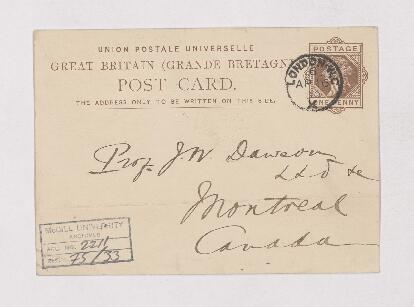 UNION POSTALE UNIVERSELLE
GREAT BRITAIN (GRANDE BRETAGNE)
POST CARD.
THE ADDRESS ONLY TO BE WRITTEN ON THIS SIDE.
POSTAGE
ONE PENNY
LONDON W.C
AP
X
Prof J W Dawson
LLD &c
Montreal
Canada
McGILL UNIVERSITY
ARCHIVES
ACC. NO. 2211
REF. 75/33